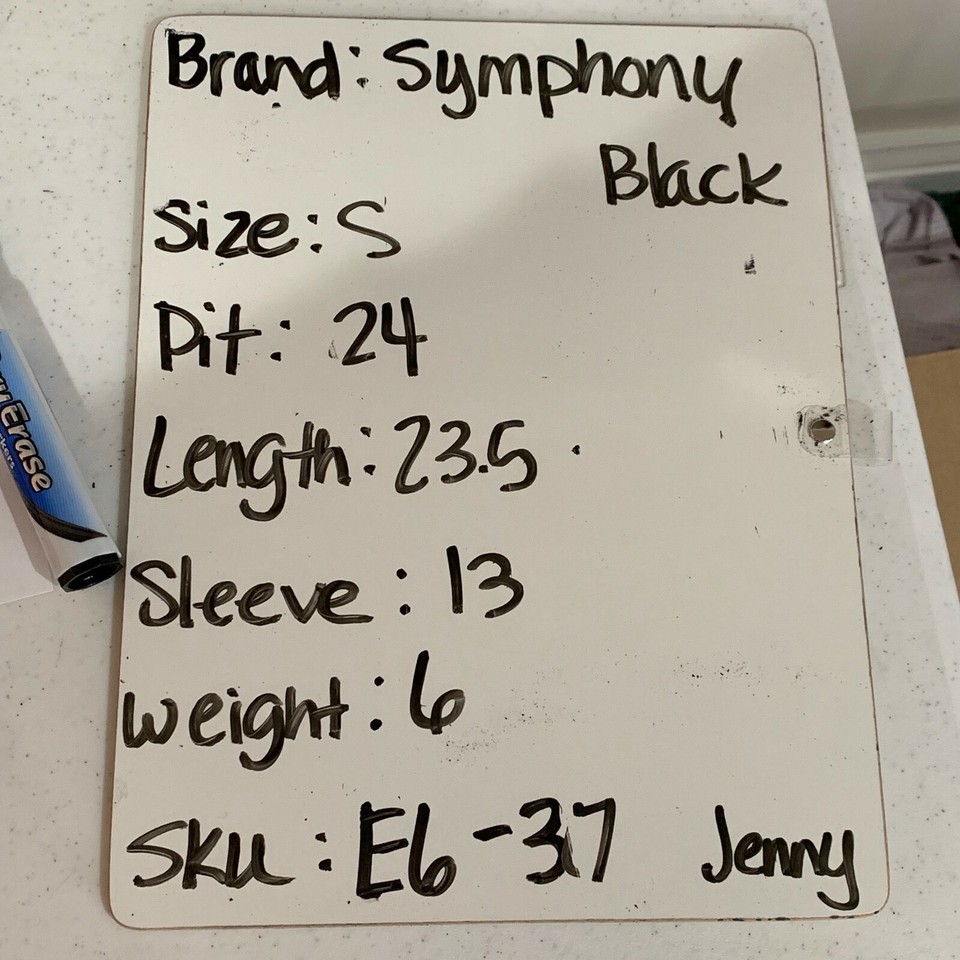 Brand: Symphony
Black
Size: S
Pit: 24
Length: 23.5
Sleeve: 13
weight: 6
SKU: E6-37 Jenny
Erase